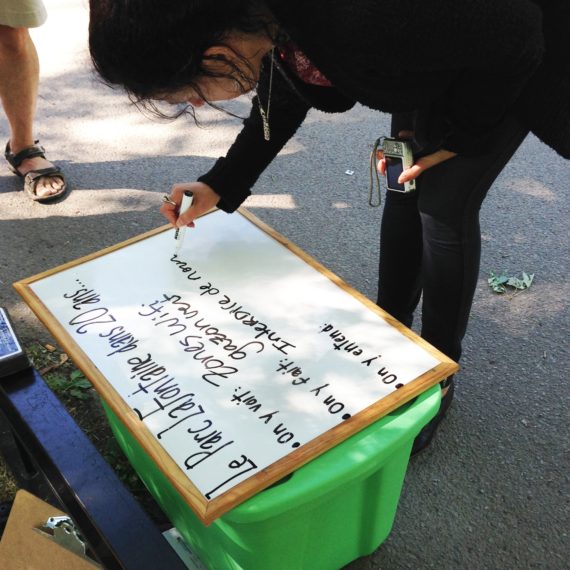 Le Parc Lafontaine dans 20 ans...
• On y voit: Zones Wi-Fi
gazon vert
• On y fait: Interdire de nour
• On y entend: